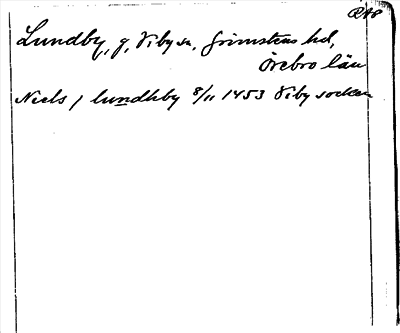 RAP
Lundby, g, Viby sn, Grimstens hd,
Örebro län
Niels j lundhby 8/11 1453 Viby socken